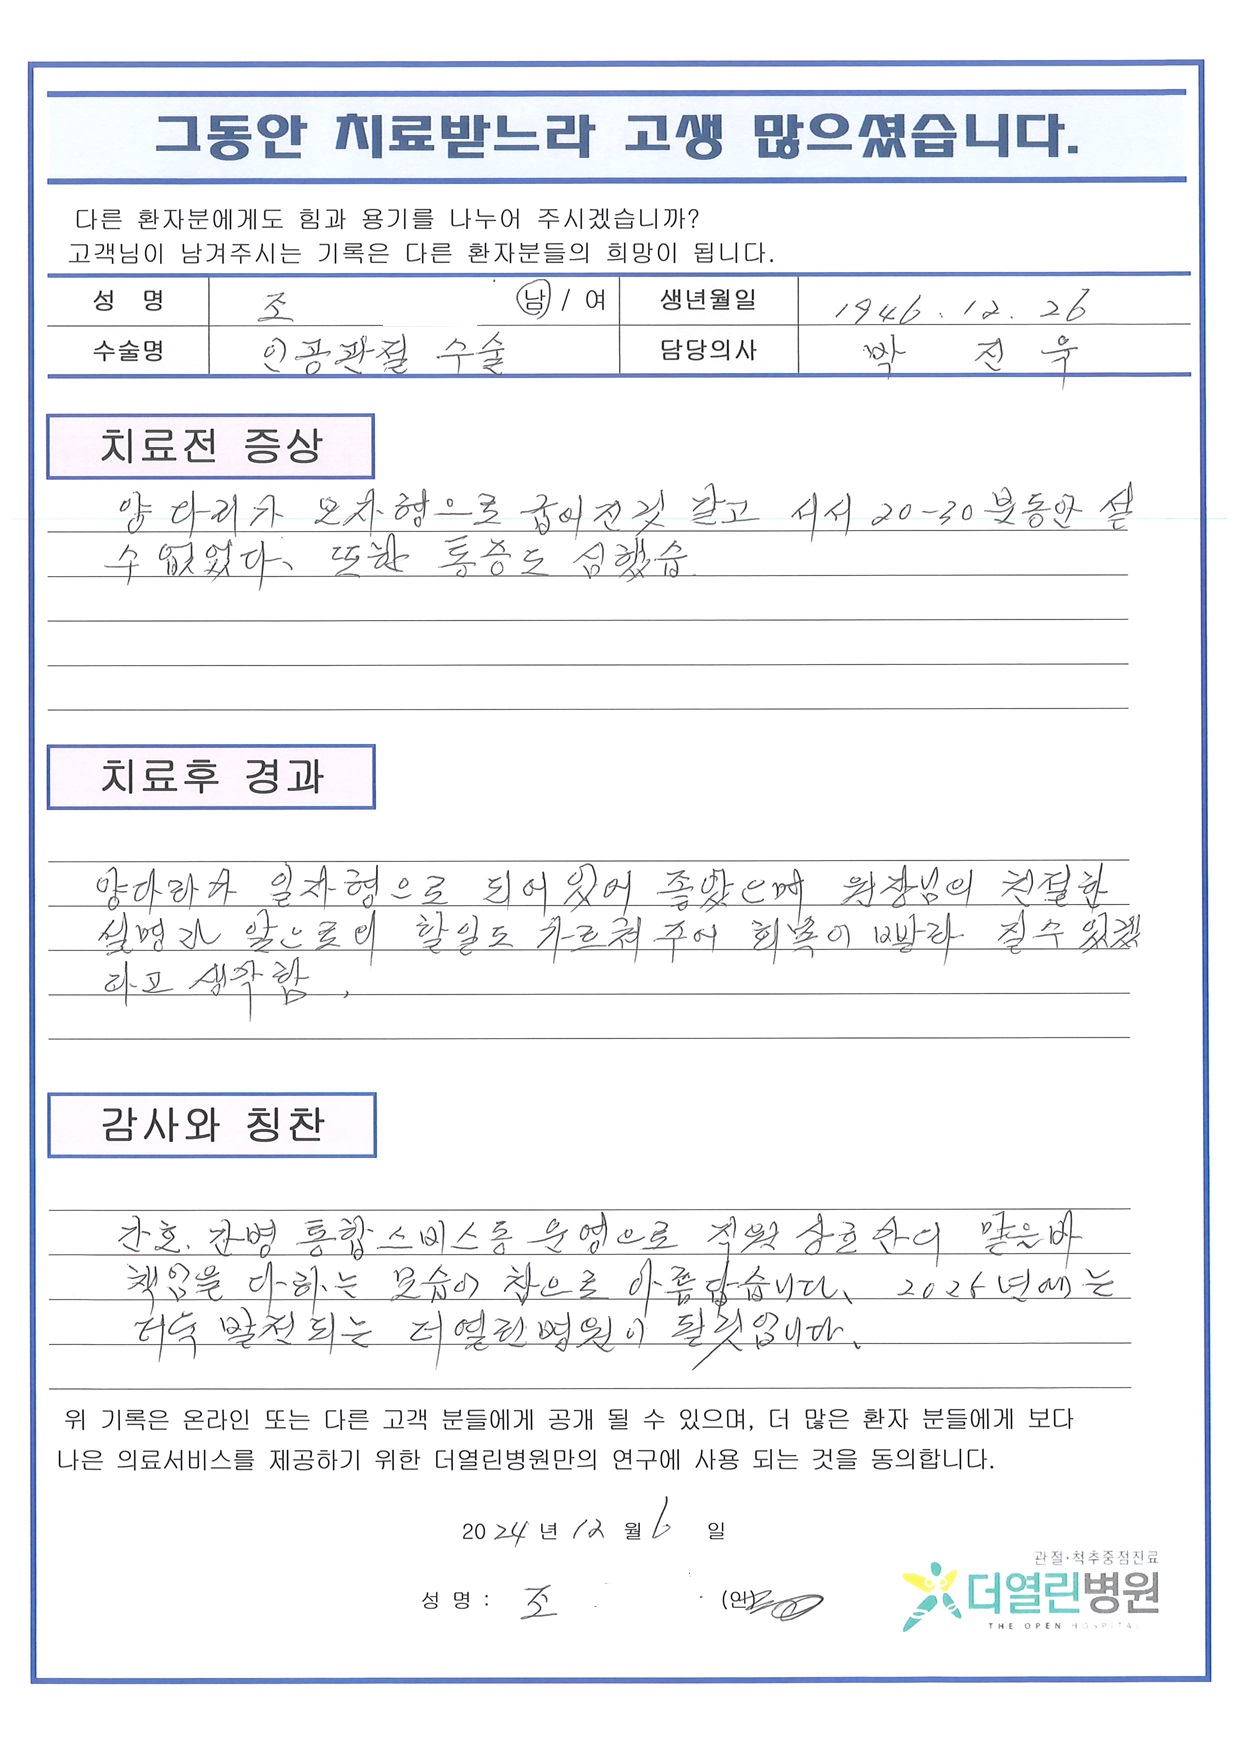 그동안 치료받느라 고생 많으셨습니다.
다른 환자분에게도 힘과 용기를 나누어 주시겠습니까?
고객님이 남겨주시는 기록은 다른 환자분들의 희망이 됩니다.
성 명 조 남 / 여 생년월일 1946. 12. 26
수술명 인공관절 수술 담당의사 박 진 욱
치료전 증상
양 다리가 오자형으로 굽어진것 같고 서서 20-30분동안 설
수 없었다. 또한 통증도 심했습
치료후 경과
양다리가 일자형으로 되어있어 좋았으며 원장님의 친절한
설명과 앞으로의 할일도 가르쳐주어 회복이 빨라 질수 있겠
라고 생각함.
감사와 칭찬
간호. 간병 통합스비스동 운영으로 직원 상호간의 맡은바
책임을 다하는 모습이 참으로 아름답습니다. 2025년에는
더욱 발전되는 더열린병원이 될것입니다.
위 기록은 온라인 또는 다른 고객 분들에게 공개 될 수 있으며, 더 많은 환자 분들에게 보다
나은 의료서비스를 제공하기 위한 더열린병원만의 연구에 사용 되는 것을 동의합니다.
2024 년 12 월 6 일
성 명 : 조 (인)
관절·척추중점진료
더열린병원
THE OPEN HOSPITAL